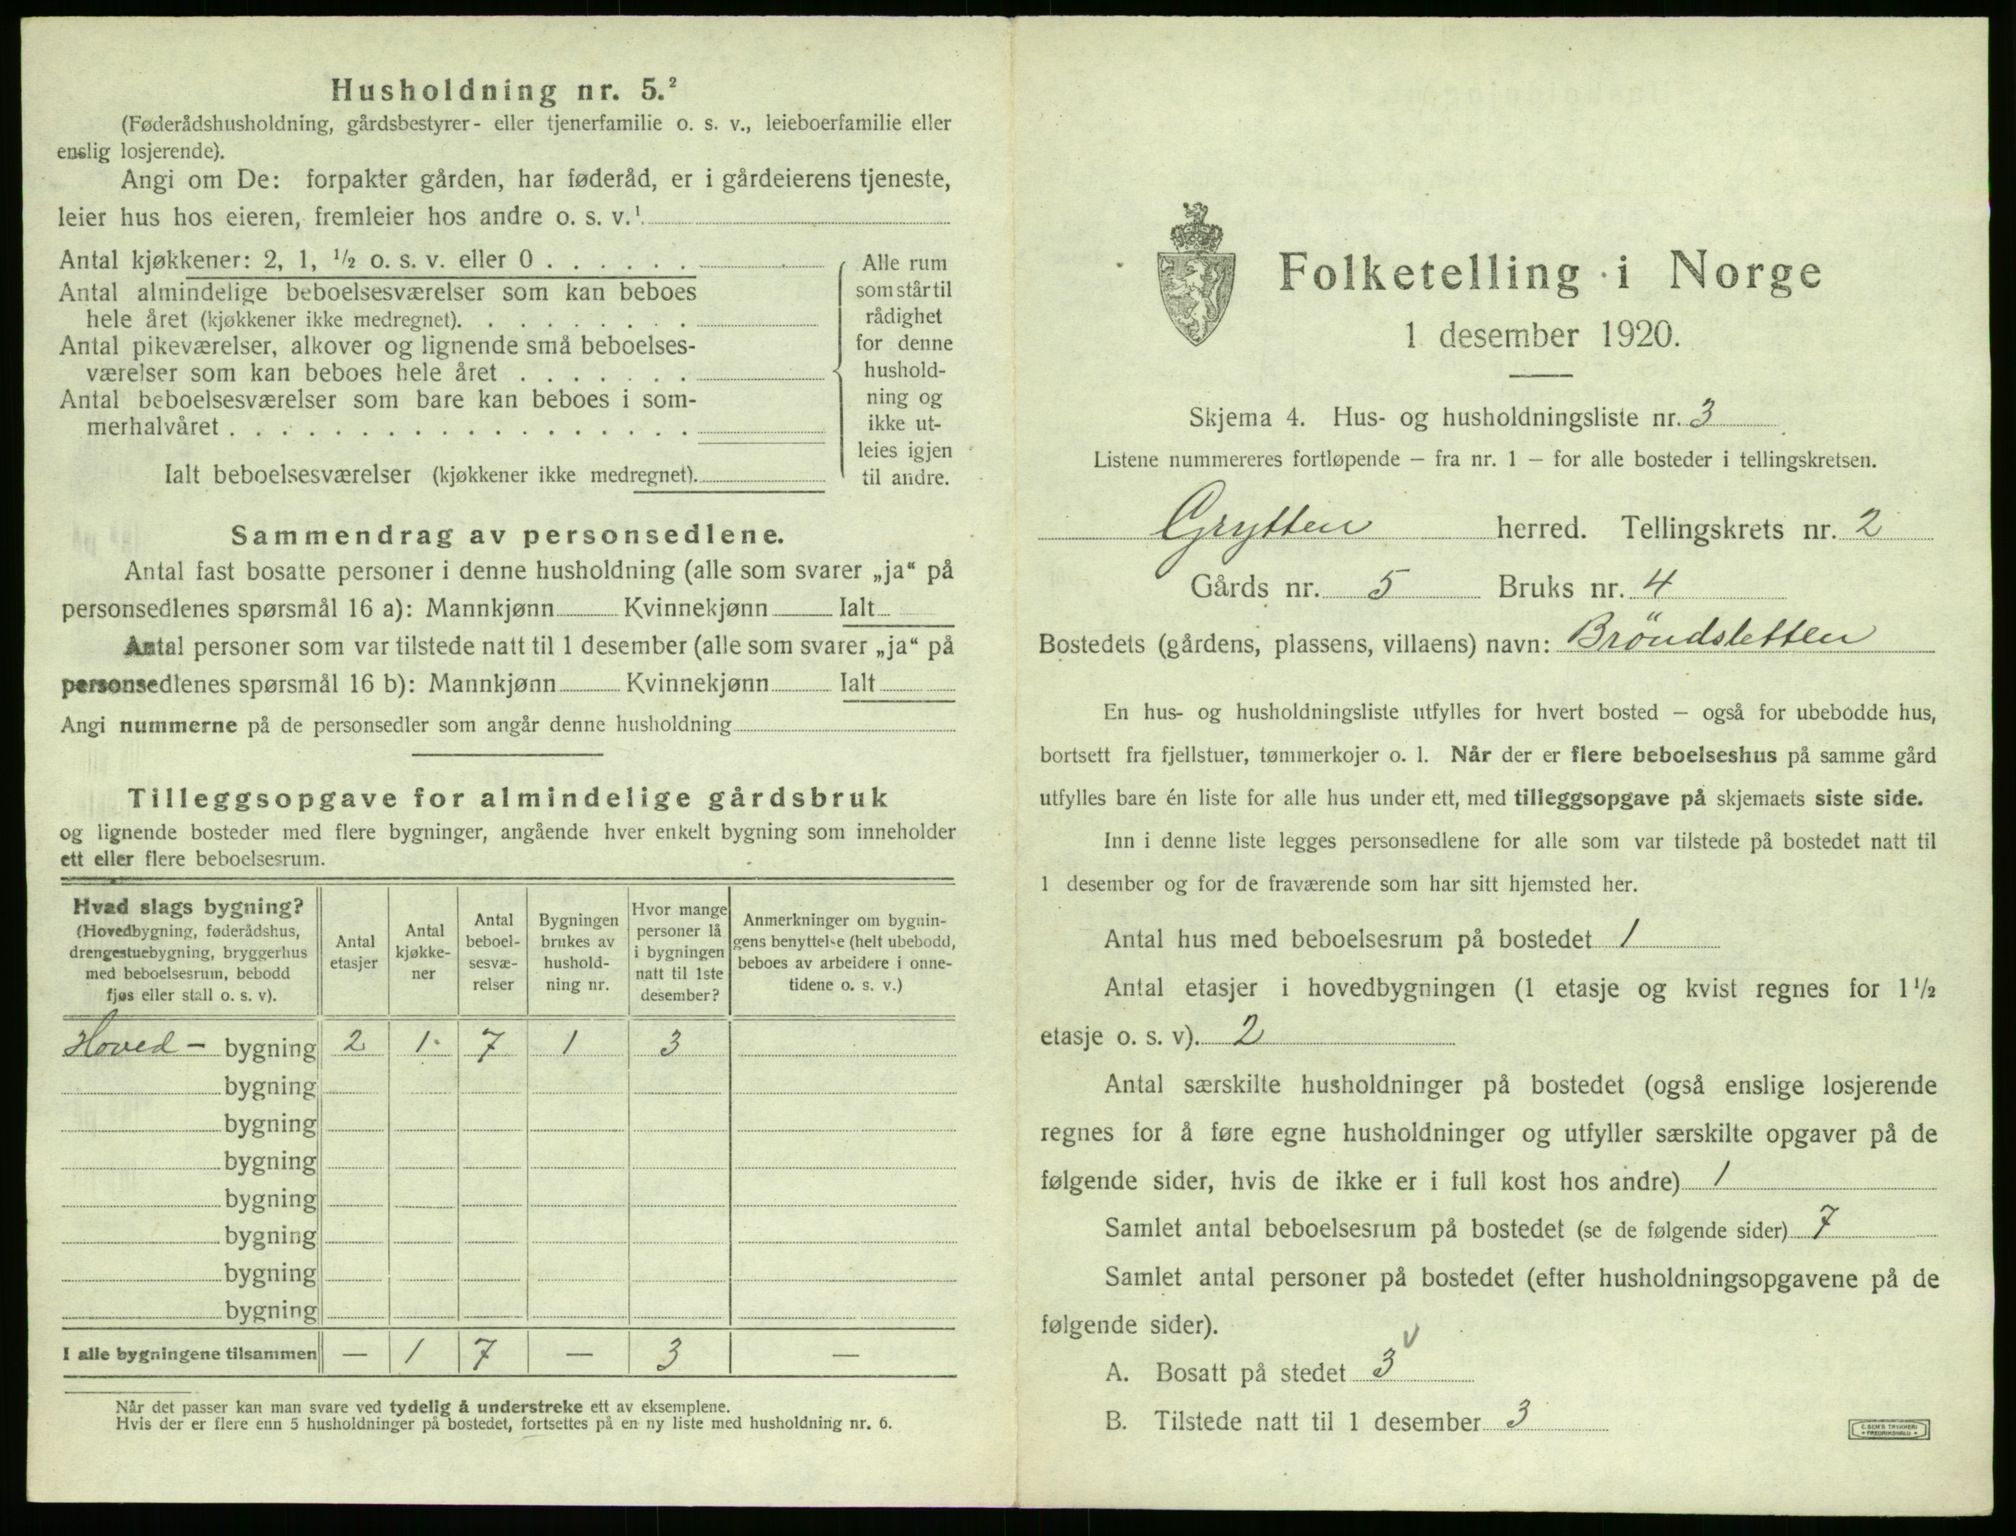 Husholdning nr. 5.²
(Føderådshusholdning, gårdsbestyrer- eller tjenerfamilie o. s. v., leieboerfamilie eller
enslig losjerende).
Angi om De: forpakter gården, har føderåd, er i gårdeierens tjeneste,
leier hus hos eieren, fremleier hos andre o. s. v.¹
Antal kjøkkener: 2, 1, ½ o. s. v. eller 0 . . . . . .
Antal almindelige beboelsesværelser som kan beboes
hele året (kjøkkener ikke medregnet). . . . . . . . .
Antal pikeværelser, alkover og lignende små beboelses-
værelser som kan beboes hele året . . . . . . .
Antal beboelsesværelser som bare kan beboes i som-
merhalvåret . . . . . . . . . . . . . . . . . .
Ialt beboelsesværelser (kjøkkener ikke medregnet).
Alle rum
som står til
rådighet
for denne
hushold-
ning og
ikke ut-
leies igjen
til andre.
Sammendrag av personsedlene.
Antal fast bosatte personer i denne husholdning (alle som svarer „ja“ på
personsedlenes spørsmål 16 a): Mannkjønn Kvinnekjønn Ialt
Antal personer som var tilstede natt til 1 desember (alle som svarer „ja“ på
personsedlenes spørsmål 16 b): Mannkjønn Kvinnekjønn Ialt
Angi nummerne på de personsedler som angår denne husholdning
Tilleggsopgave for almindelige gårdsbruk
og lignende bosteder med flere bygninger, angående hver enkelt bygning som inneholder
ett eller flere beboelsesrum.
Hvad slags bygning?
(Hovedbygning, føderådshus,
drengestuebygning, bryggerhus
med beboelsesrum, bebodd
fjøs eller stall o. s. v).
Antal
etasjer
Antal
kjøkke-
ner
Antal
beboel-
sesvæ-
relser
Bygningen
brukes av
hushold-
ning nr.
Hvor mange
personer lå
i bygningen
natt til 1ste
desember?
Anmerkninger om bygnin-
gens benyttelse (helt ubebodd,
beboes av arbeidere i onne-
tidene o. s. v.)
Hoved- bygning 2 1 7 1 3
bygning
bygning
bygning
bygning
bygning
bygning
bygning
I alle bygningene tilsammen — 1 7 — 3 —
Når det passer kan man svare ved tydelig å understreke ett av eksemplene.
Hvis der er flere enn 5 husholdninger på bostedet, fortsettes på en ny liste med husholdning nr. 6.
Folketelling i Norge
1 desember 1920.
Skjema 4. Hus- og husholdningsliste nr. 3
Listene nummereres fortløpende – fra nr. 1 – for alle bosteder i tellingskretsen.
Grytten herred. Tellingskrets nr. 2
Gårds nr. 5 Bruks nr. 4
Bostedets (gårdens, plassens, villaens) navn: Bröndsletten
En hus- og husholdningsliste utfylles for hvert bosted – også for ubebodde hus,
bortsett fra fjellstuer, tømmerkojer o. l. Når der er flere beboelseshus på samme gård
utfylles bare én liste for alle hus under ett, med tilleggsopgave på skjemaets siste side.
Inn i denne liste legges personsedlene for alle som var tilstede på bostedet natt til
1 desember og for de fraværende som har sitt hjemsted her.
Antal hus med beboelsesrum på bostedet 1
Antal etasjer i hovedbygningen (1 etasje og kvist regnes for 1½
etasje o. s. v). 2
Antal særskilte husholdninger på bostedet (også enslige losjerende
regnes for å føre egne husholdninger og utfyller særskilte opgaver på de
følgende sider, hvis de ikke er i full kost hos andre) 1
Samlet antal beboelsesrum på bostedet (se de følgende sider) 7
Samlet antal personer på bostedet (efter husholdningsopgavene på de
følgende sider).
A. Bosatt på stedet 3 v
B. Tilstede natt til 1 desember 3
C. SEM'S TRYKKERI
FREDRIKSHALD